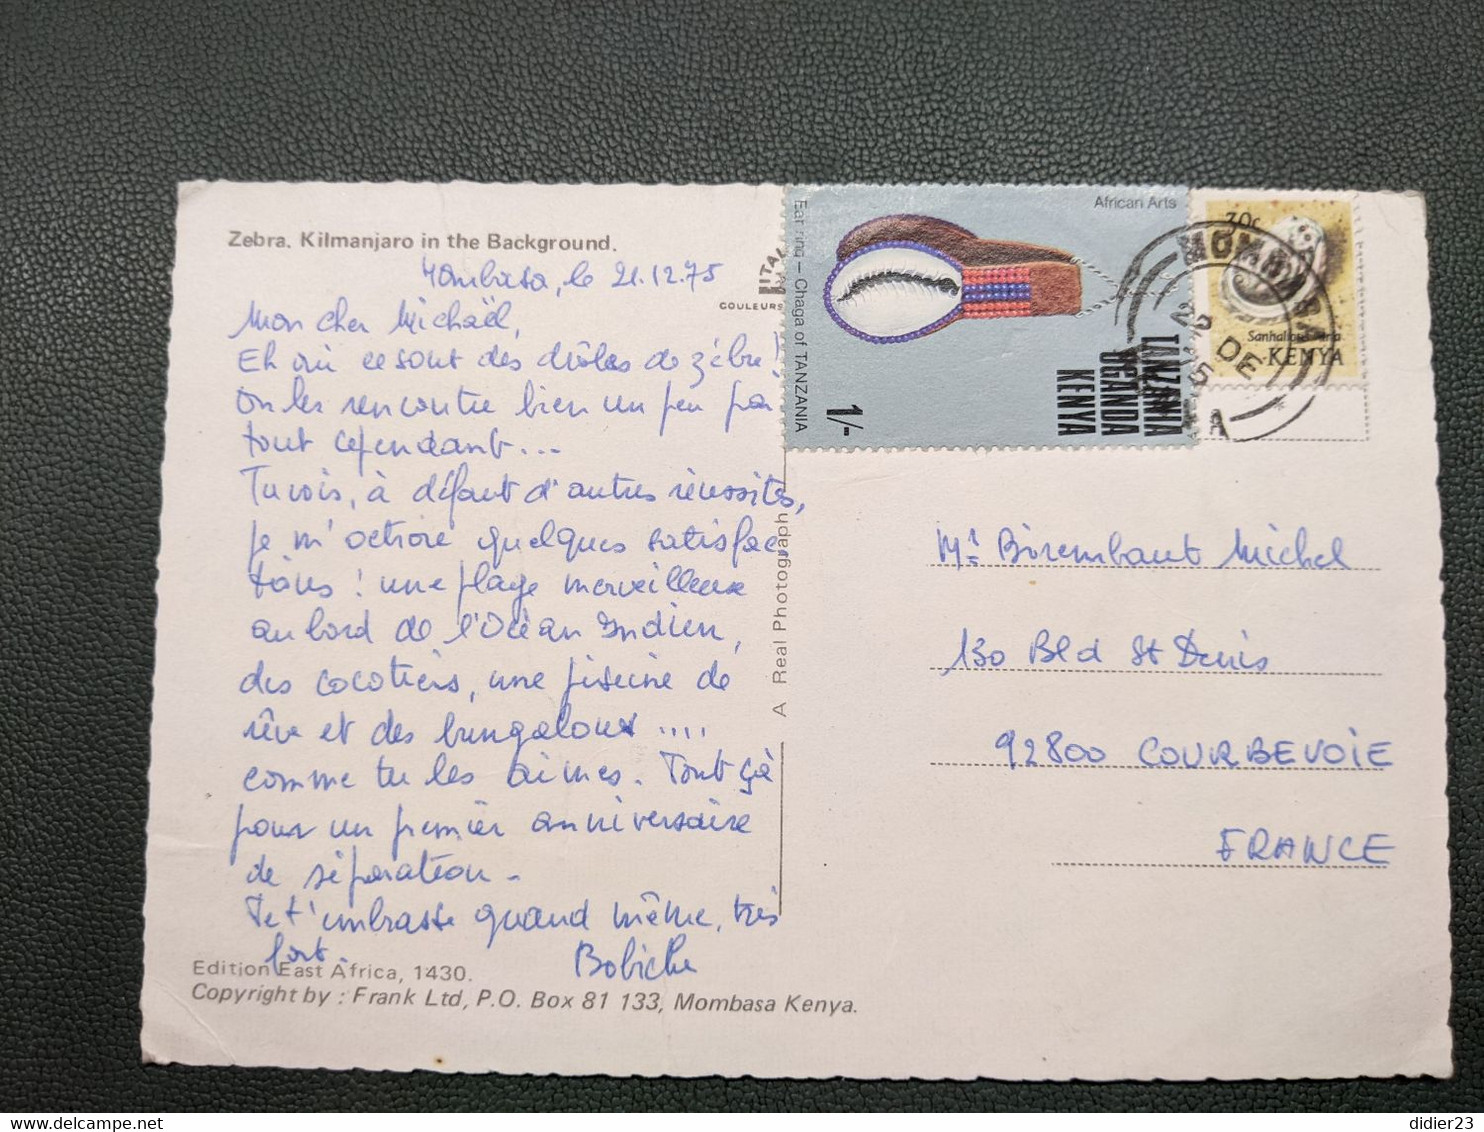 Zebra. Kilmanjaro in the Background.
Mombasa, le 21.12.75
Mon cher Michaël,
Eh oui ce sont des drôles de zèbre!
On les rencontre bien un peu par
tout cependant...
Tu vois, à défaut d'autres réussites,
je m'octroie quelques satisfac
tions! une plage merveilleuse
au bord de l'Océan Indien,
des cocotiers, une piscine de
rêve et des bungalows ....
comme tu les aimes. Tout çà
pour un premier anniversaire
de séparation.
Je t'embrasse quand même, très
fort.
Bobiche
Edition East Africa, 1430.
Copyright by : Frank Ltd, P.O. Box 81 133, Mombasa Kenya.
ITAL
COULEURS
A Real Photograph
Ear ring – Chaga of TANZANIA
African Arts
1/-
TANZANIA
UGANDA
KENYA
30c
KENYA
MOMBASA
DE
Mr Birembaut Michel
130 Bld St Denis
92800 COURBEVOIE
FRANCE
didier23